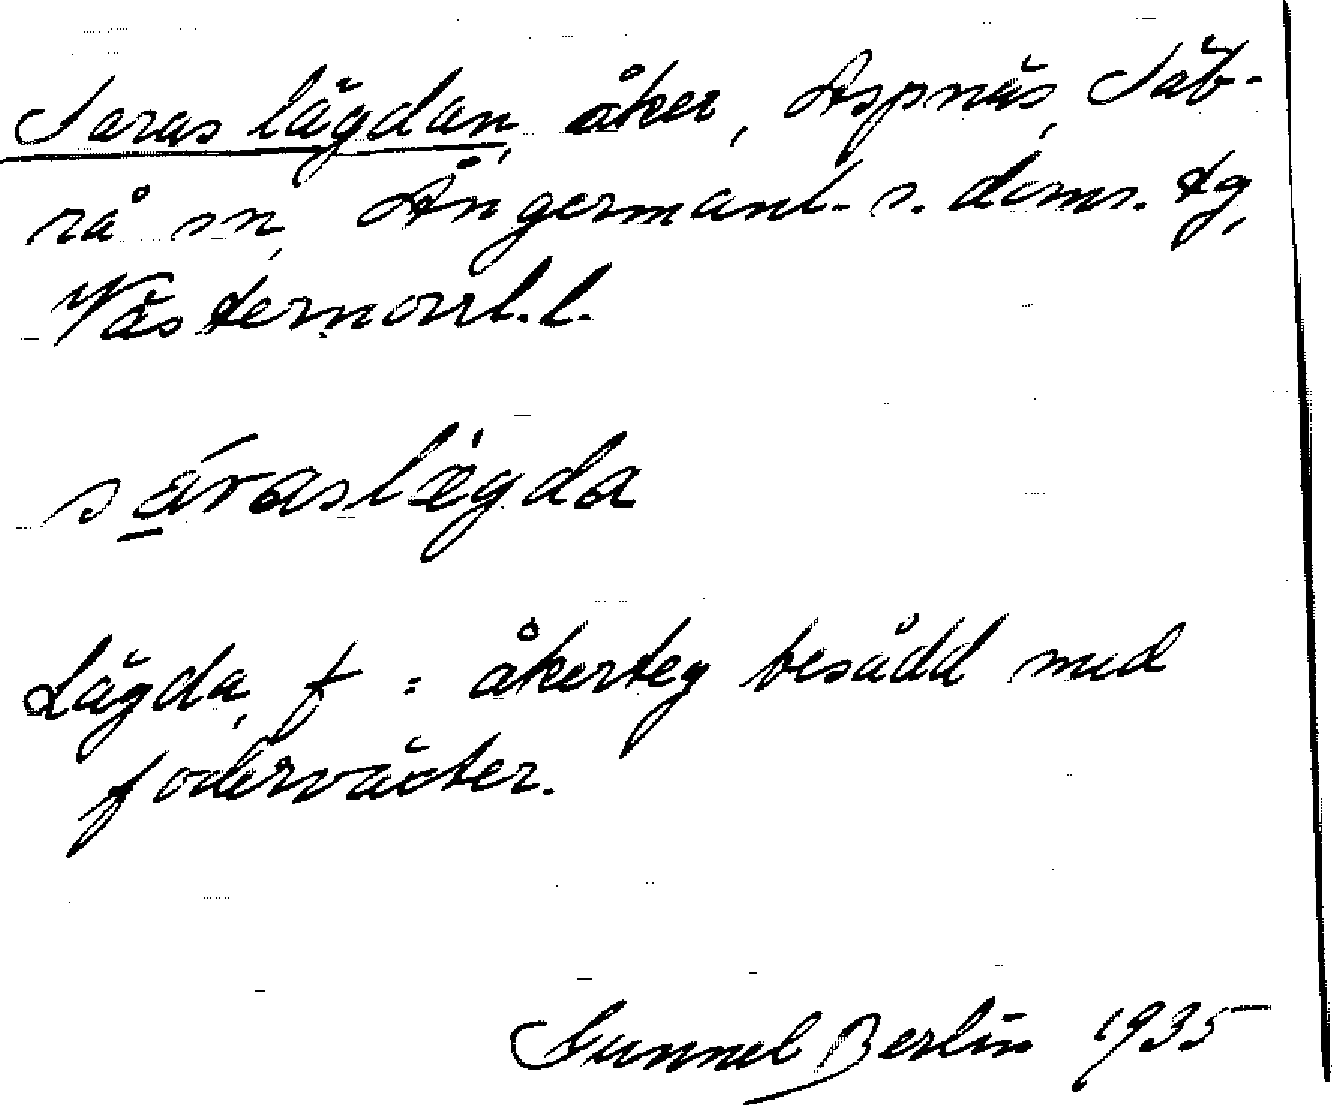 Saras lägdan, åker, Aspnäs, Säb-
rå sn, Ångermanl. s. doms. tg,
Västernorrl. l.
sáraslègda
Lägda, f = åkerteg besådd med
foderväxter.
Gunnel Berlin 1935